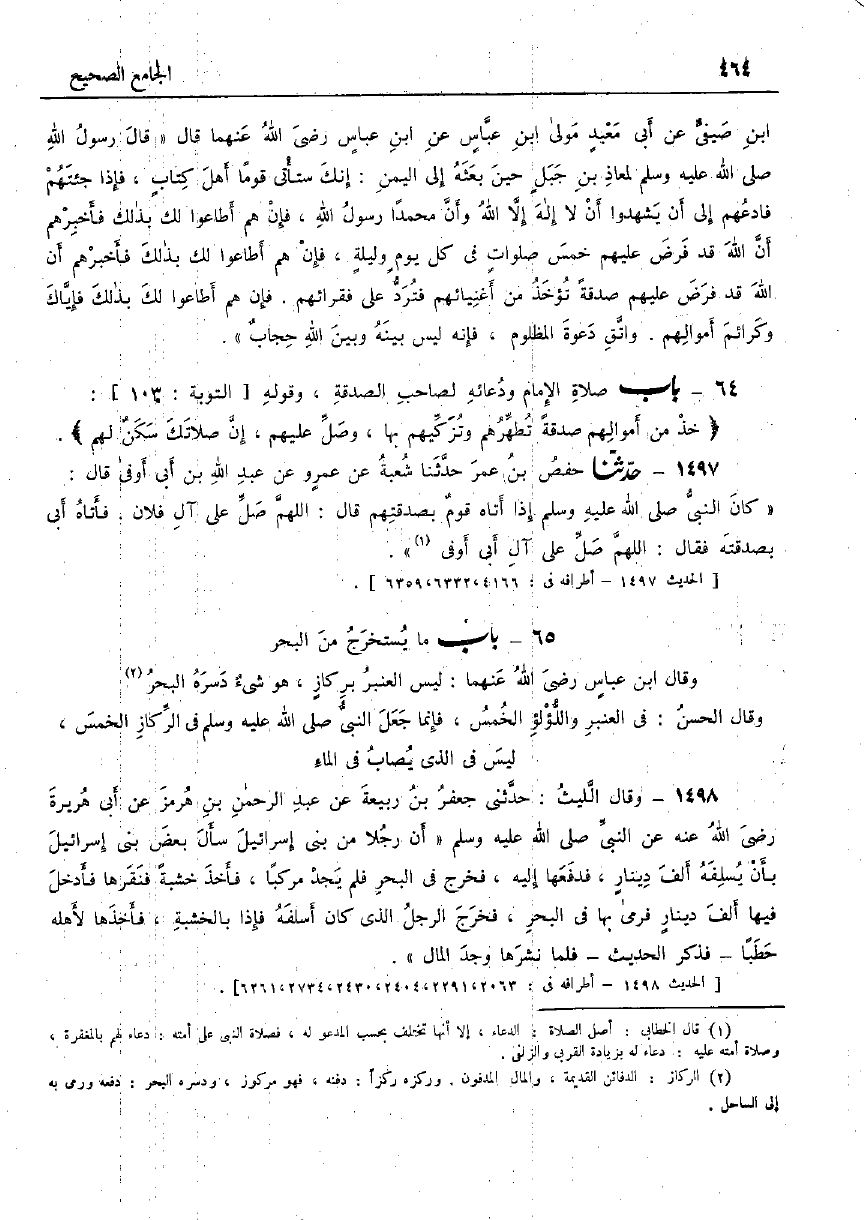 ٤٦٤
الجامع الصحيح
ابنِ صَيفىٍّ عن أَبى مَعْبدٍ مَولىٰ ابنِ عبَّاس عنِ ابنِ عباس رضىَ اللهُ عَنهما قال « قالَ رسولُ اللهِ
صلى الله عليه وسلم لمعاذِ بنِ جَبَلٍ حينَ بعَثَهُ إلى اليمنِ : إنكَ ستأْتى قومًا أهلَ كِتابٍ ، فإذا جئتَهُمْ
فادعُهم إلى أن يَشهدوا أنْ لا إلهَ إلَّا اللهُ وأنَّ محمدًا رسولُ اللهِ ، فإنْ هم أطاعوا لك بذٰلكَ فأخبِرْهم
أنَّ اللهَ قد فَرَضَ عليهم خمسَ صلواتٍ فى كل يومٍ وليلةٍ ، فإنْ هم أَطاعوا لك بذٰلكَ فأخبرْهم أن
اللهَ قد فرَضَ عليهم صدقةً تُؤخَذُ من أغنِيائهم فتُرَدُّ على فقرائهم . فإن هم أطاعوا لكَ بذٰلكَ فإيَّاكَ
وكَرائمَ أموالِهم . واتَّقِ دَعوةَ المظلوم ، فإنه ليس بينَهُ وبينَ اللهِ حِجابٌ » .
٦٤ – باب صلاةِ الإمام ودُعائهِ لصاحبِ الصدقةِ ، وقولهِ [ التوبة : ١٠٣ ] :
﴿ خذْ من أموالِهم صدقةً تُطهِّرُهم وتُزَكِّيهم بها ، وصَلِّ عليهم ، إنَّ صلاتَكَ سَكَنٌ لهم ﴾ .
١٤٩٧ – حدّثنا حفصُ بنُ عمرَ حدَّثَنا شُعبةُ عن عمرٍو عن عبدِ اللهِ بن أبى أَوفىٰ قال :
« كانَ النبىُّ صلى الله عليهِ وسلم إذا أتاه قومٌ بصدقتِهم قال : اللهمَّ صَلِّ على آلِ فلان . فأتاهُ أبى
بصدقتَه فقال : اللهمَّ صَلِّ على آلِ أبى أوفى (١) » .
[ الحديث ١٤٩٧ – أطرافه فى : ٤١٦٦، ٦٣٣٢، ٦٣٥٩ ] .
٦٥ – باب ما يُستخرَجُ منَ البحر
وقال ابن عباس رضىَ اللهُ عَنهما : ليس العنبرُ بركازٍ ، هو شىءٌ دَسرَهُ البحرُ (٢)
وقال الحسنُ : فى العنبرِ واللُّؤْلؤِ الخُمسُ ، فإنما جَعَلَ النبىُّ صلى الله عليه وسلم فى الرِّكازِ الخمسَ ،
ليسَ فى الذى يُصابُ فى الماءِ
١٤٩٨ – وقال الَّليثُ : حدَّثنى جعفرُ بنُ ربيعةَ عن عبدِ الرحمٰنِ بنِ هُرمزَ عن أبى هُريرةَ
رضىَ اللهُ عنه عن النبىِّ صلى الله عليه وسلم « أن رجُلا من بنى إسرائيلَ سألَ بعضَ بنى إسرائيلَ
بأنْ يُسلِفَهُ ألفَ دِينارٍ ، فدفَعَها إليه ، فخرج فى البحرِ فلم يَجدْ مركبًا ، فأخذَ خشبةً فنَقَرها فأدخلَ
فيها ألفَ دينارٍ فرمىٰ بها فى البحرِ ، فخرَجَ الرجلُ الذى كان أسلفَهُ فإذا بالخشبةِ ، فأخذَها لأهله
حَطبًا – فذكر الحديث – فلما نشرَها وجدَ المال » .
[ الحديث ١٤٩٨ – أطرافه فى : ٢٠٦٣، ٢٢٩١، ٢٤٠٤، ٢٤٣٠، ٢٧٣٤، ٦٢٦١] .
(١) قال الخطابى : أصل الصلاة : الدعاء ، إلا أنها تختلف بحسب المدعو له ، فصلاة النبى على أمته : دعاء لهم بالمغفرة ،
وصلاة أمته عليه : دعاء له بزيادة القربى والزلفى .
(٢) الركاز : الدفائن القديمة ، والمال المدفون . وركزه ركزاً : دفنه ، فهو مركوز ، ودسره البحر : دفعه ورمى به
إلى الساحل .